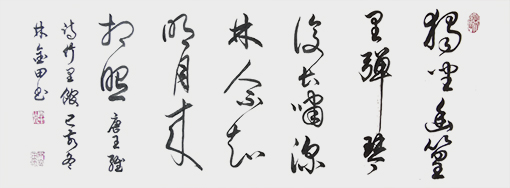 獨坐幽篁
里彈琴
復長嘯深
林人不知
明月來
相照 唐王維
詩竹里館 己亥冬
林金田书